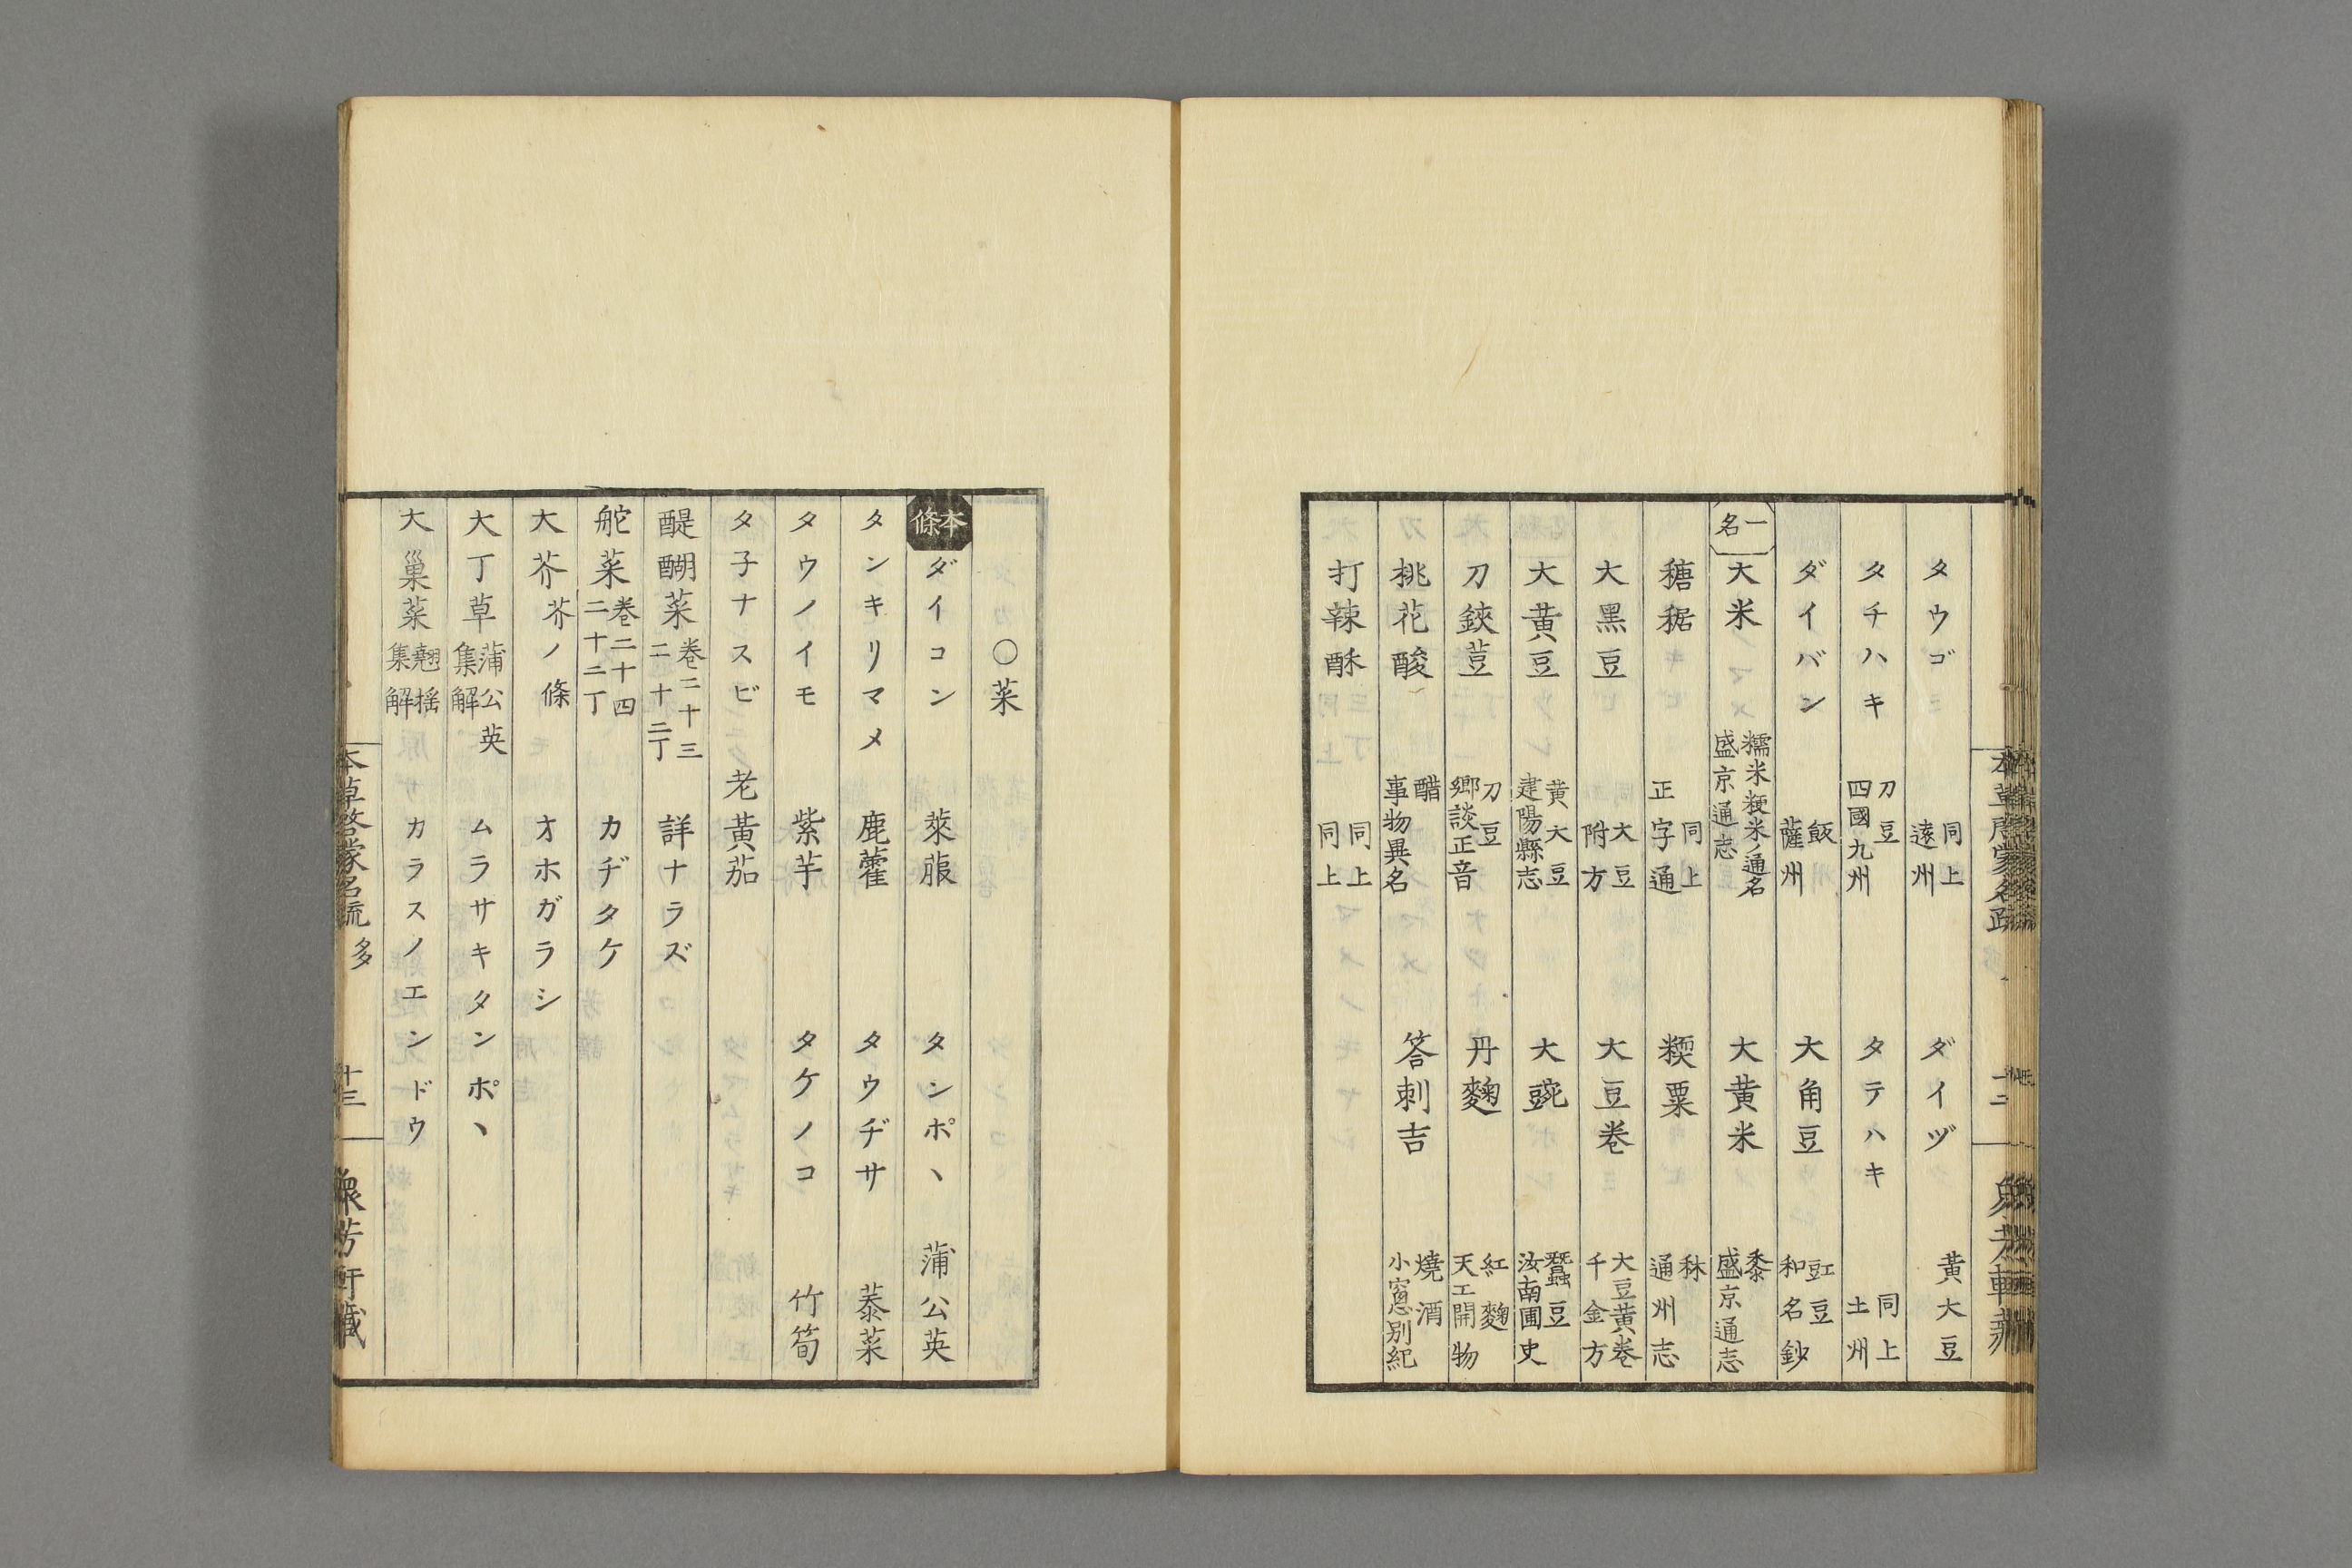 タウゴ 同上 遠州 ダイヅ 黃大豆
タチハキ 刀豆 四國九州 タテハキ 同上 土州
ダイバン 飯 薩州 大角豆 豇豆 和名鈔
一名 大米 糯米粳米ノ通名 盛京通志 大黃米 黍 盛京通志
穗䅔 同上 正字通 糯粟 秫 通州志
大黑豆 大豆 附方 大豆卷 大豆黃卷 千金方
大黃豆 黃大豆 建陽縣志 大豌 蠶豆 汝南圃史
刀鋏荳 刀豆 鄉談正音 丹麴 紅麴 天工開物
桃花酸 醋 事物異名 答刺吉 燒酒 小窻別紀
打辣酥 同上 同上
〇菜
本條 ダイコン 萊菔 タンポヽ 蒲公英
タンキリマメ 鹿藿 タウヂサ 菾菜
タウノイモ 紫芋 タケノコ 竹筍
タ子ナスビ 老黃茄
醍醐菜 卷二十三 二十二丁 詳ナラズ
舵菜 卷二十四 二十二丁 カヂタケ
大芥 芥ノ條 オホガラシ
大丁草 蒲公英 集解 ムラサキタンポヽ
大巢菜 翹搖 集解 カラスノエンドウ
本草啓蒙名疏 多 十三 衆芳軒藏